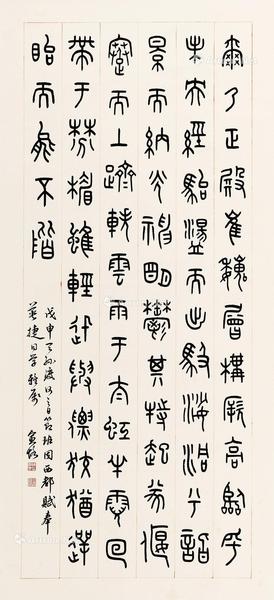 爾乃正殿崔巍層構厥高臨乎
未央經駘盪而出馺娑洞兮詣
景而納光神明鬱其特起遂偃
蹇而上躋軼雲雨于太虹半霓回
帶于棼楣雖輕迅與僄狡猶遌
眙而能不階
戊申天孫渡河之日節班固西都賦奉
捷同學雅屬